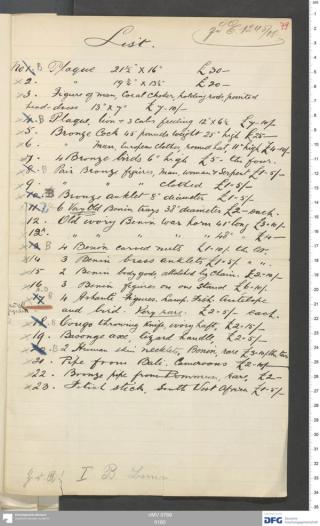 79
List.
No 1. B Plaque 21½" x 16" £30–
2. " 19½" x 15½" £20–
3. Figure of man, Coral Choker, holding rods, pointed
head-dress 15" x 7" £7-10/-
4. B Plaque, lion + 3 cubs feeding 12" x 6¼ £7-10/-
5. Bronze Cock 45 pounds weight 25" high £25–
6. " Man, European clothes, round hat, 11" high £4-10/-
7. 4 Bronze birds 6" high £5– the four.
8. B Pair Bronze figures, man, woman + Serpent £1-5/-
9. " " " clothed £1-5/-
10. B Bronze anklet 5" diameter £1-5/-
11. 6 Very Old Benin trays 38" diameter £2– each.
12. Old ivory Benin war horn 41" long £3-10/-
13. " " " " £4–
B 4 Benin carved nuts £1-10/- the
14 3 Benin brass anklets £1-5/- " "
15 2 Benin body gods, attached by Chain £2-10/-
16. 3 Benin figures on one Stand £6-10/-
4 Ashanti Figures, Fish, Antelope
and bird. Very rare. £2-5/- each.
Congo throwing Knife, ivory haft, £2-15/-
19. axe, Lizard handle, £2-5/-
B 2 Human skin necklets, Benin, rare £3-10/-
21. Pipe from Bali. Cameroons £2-10/-
22. Bronze pipe from rare, £2–
23. Fetish stick, South West Africa £1-5/-
I B
HMV 0799
0160
DFG